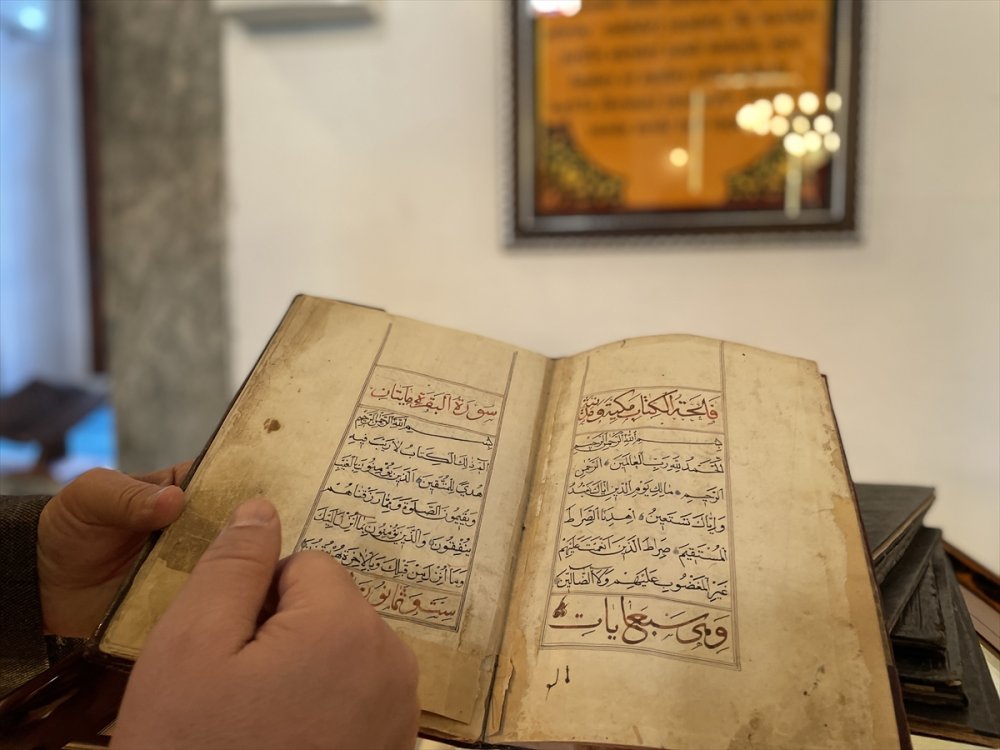 فاتحة الكتاب مكية و
بسم الله الرحمن الرحيم
الحمد لله رب العالمين الرحمن
الرحيم مالك يوم الدين اياك نعبد
واياك نستعين اهدنا الصراط
المستقيم صراط الذين انعمت عليهم
غير المغضوب عليهم ولا الضالين
وهي سبع ايات
الم
سورة البقرة مايتان
بسم الله الرحمن الرحيم
الم ذلك الكتاب لا ريب فيه
هدى للمتقين الذين يؤمنون بالغيب
ويقيمون الصلوة ومما رزقناهم
ينفقون والذين يؤمنون بما انزل اليك
وما انزل من قبلك وبالاخرة هم
ست وثمانون